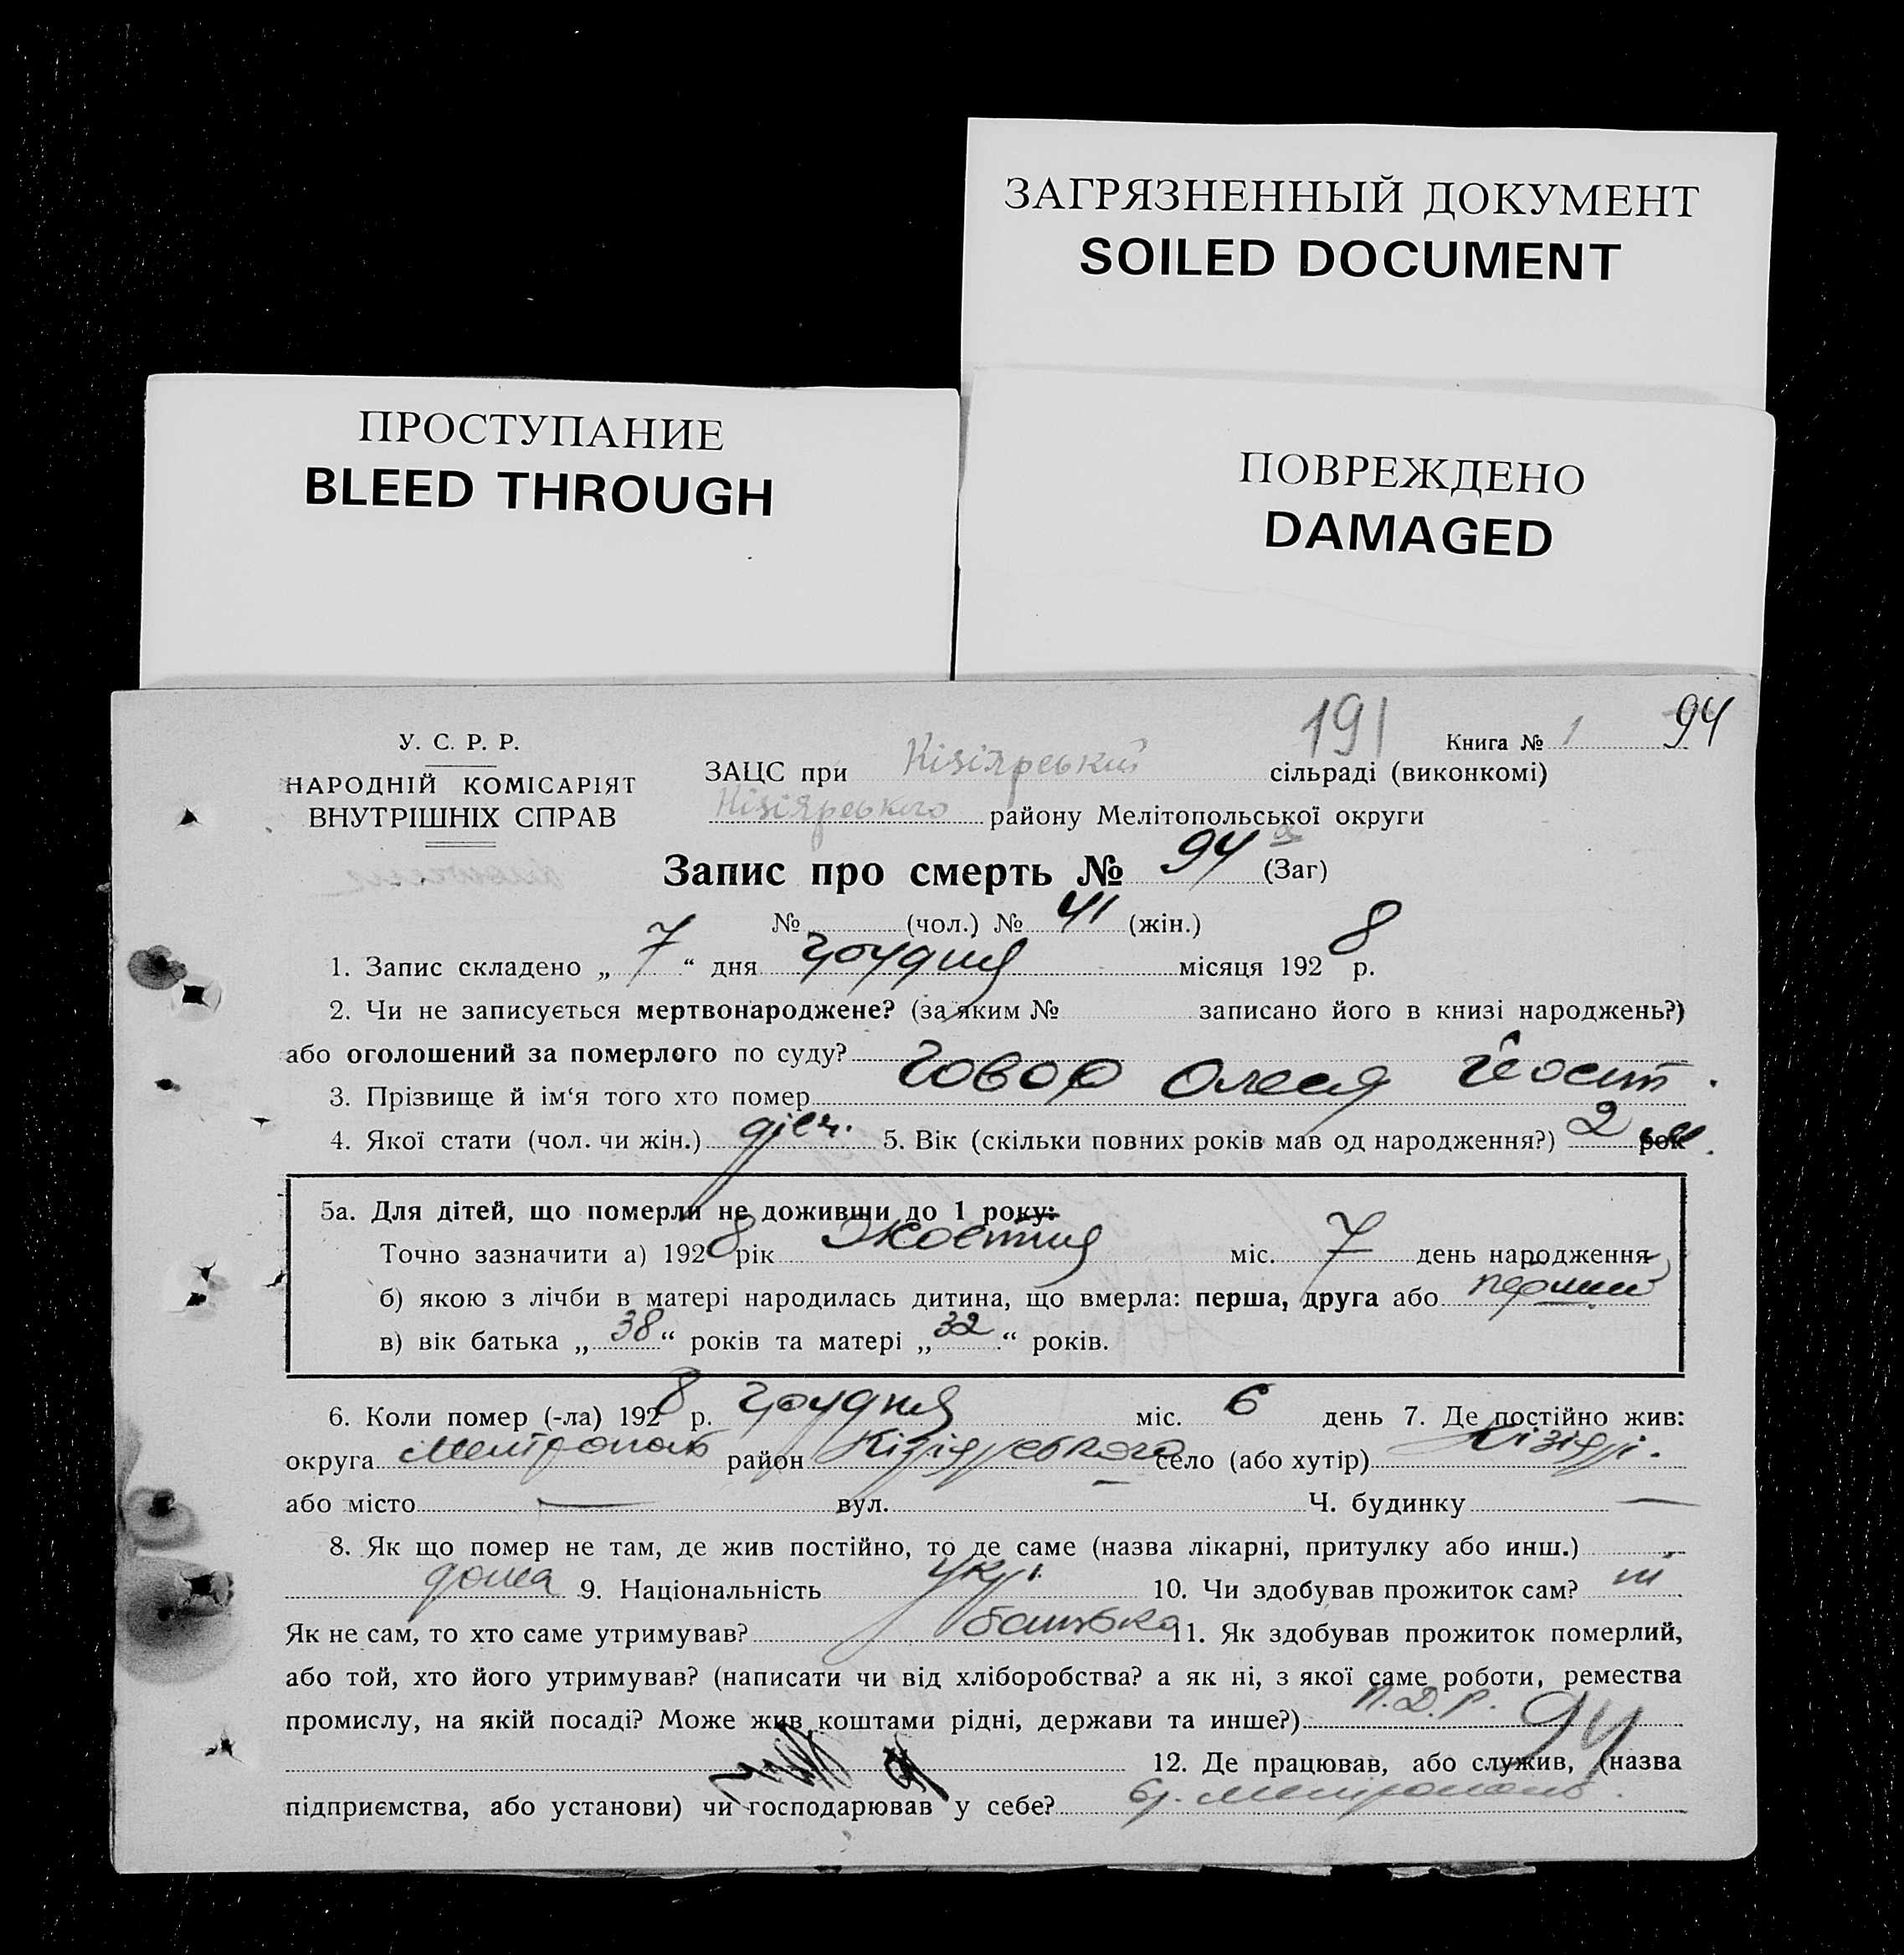 ЗАГРЯЗНЕННЫЙ ДОКУМЕНТ
SOILED DOCUMENT
ПРОСТУПАНИЕ
BLEED THROUGH
ПОВРЕЖДЕНО
DAMAGED
191
94
У. С. Р. Р.
НАРОДНІЙ КОМІСАРІЯТ
ВНУТРІШНІХ СПРАВ
Книга № 1
ЗАЦС при Кізіярський сільраді (виконкомі)
Кізіярського району Мелітопольської округи
Запис про смерть № 94 (Заг)
№ (чол.) № 41 (жін.)
1. Запис складено „ 7 “ дня грудня місяця 1928 р.
2. Чи не записується мертвонароджене? (за яким № записано його в книзі народжень?)
або оголошений за померлого по суду?
3. Прізвище й ім‘я того хто помер Говор Олеся
4. Якої стати (чол. чи жін.) дівч. 5. Вік (скільки повних років мав од народження?) 2
5а. Для дітей, що померли не доживши до 1 року:
Точно зазначити а) 1928 рік Жовтня міс. 7 день народження
б) якою з лічби в матері народилась дитина, що вмерла: перша, друга або
в) вік батька „ 38 “ років та матері „ 32 “ років.
6. Коли помер (-ла) 1928 р. Грудня міс. 6 день 7. Де постійно жив:
округа Мелітополь район Кізіярського село (або хутір) Кізіярі.
або місто — вул. — Ч. будинку —
8. Як що помер не там, де жив постійно, то де саме (назва лікарні, притулку або инш.)
дома 9. Національність укр. 10. Чи здобував прожиток сам? ні
Як не сам, то хто саме утримував? батько 11. Як здобував прожиток померлий,
або той, хто його утримував? (написати чи від хліборобства? а як ні, з якої саме роботи, ремества
промислу, на якій посаді? Може жив коштами рідні, держави та инше?)
94
12. Де працював, або служив, (назва
підприємства, або установи) чи господарював у себе? Мелітополь.